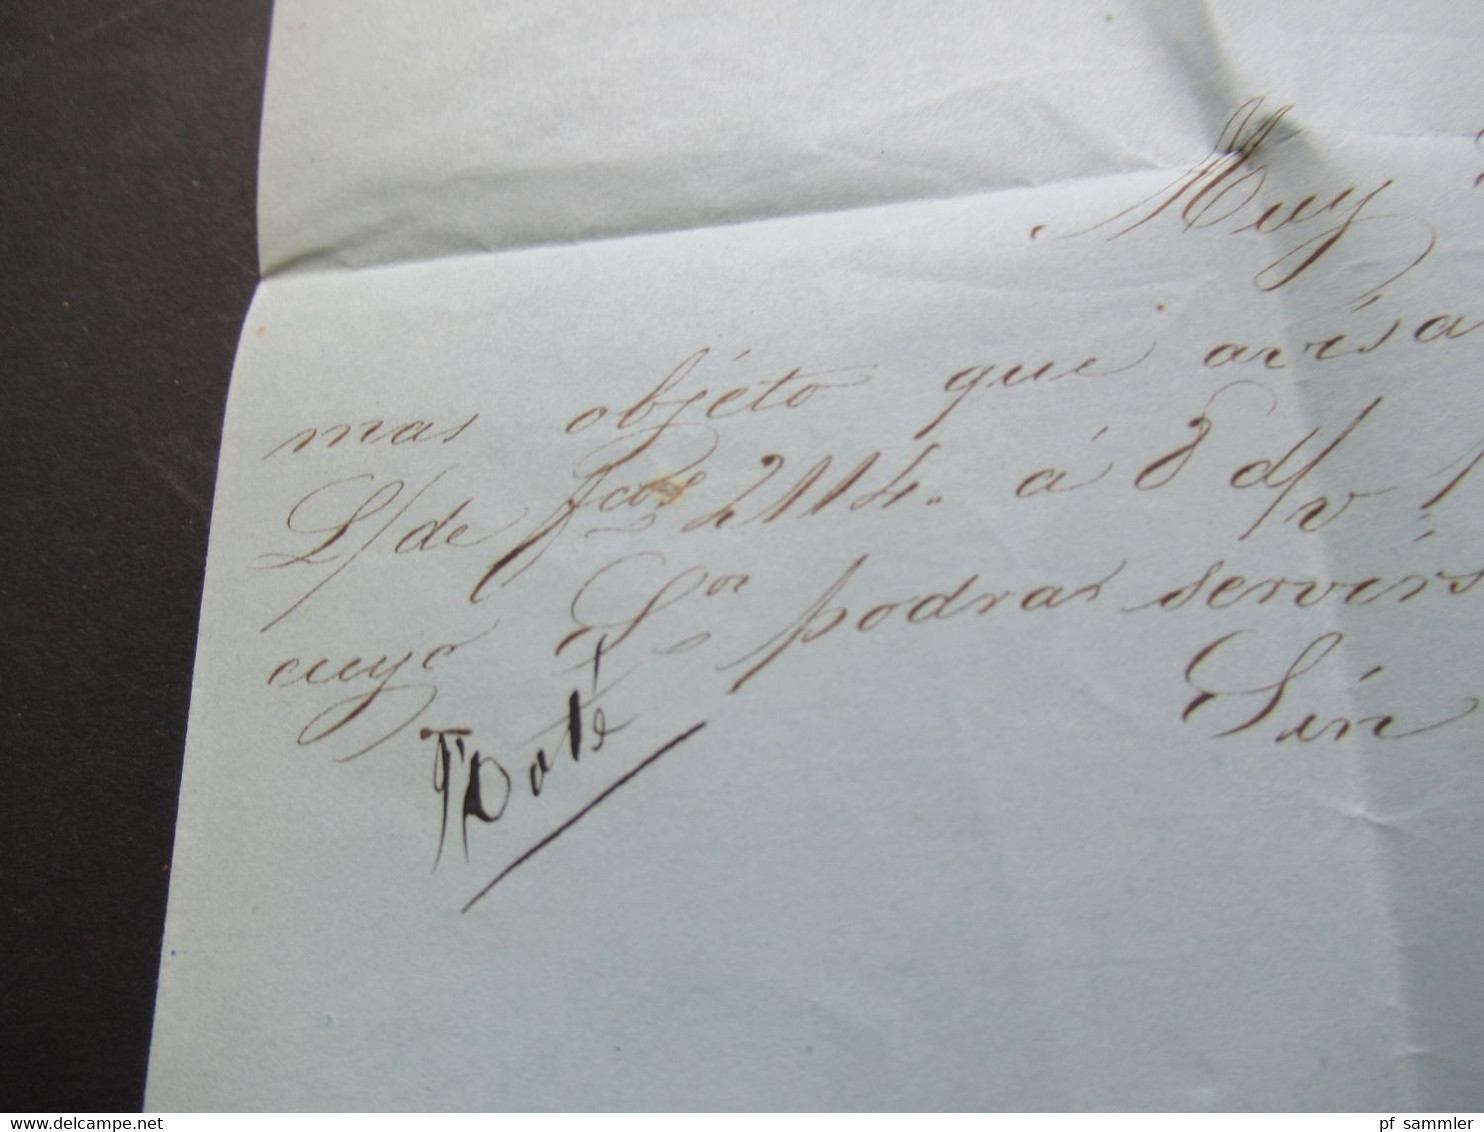 Muy
mas objéto que avisa
L/ de fcos 2114. á 8 d/v
cuyo Sor podras servirs
Sin
Noté
delcampe.net
pf_sammler